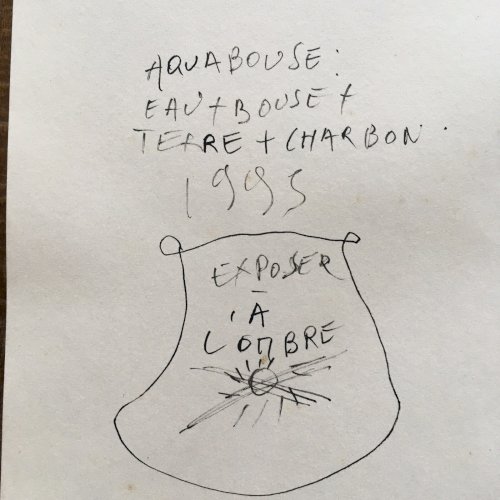 AQUABOUSE :
EAU + BOUSE +
TERRE + CHARBON.
1995
EXPOSER
À
L'OMBRE